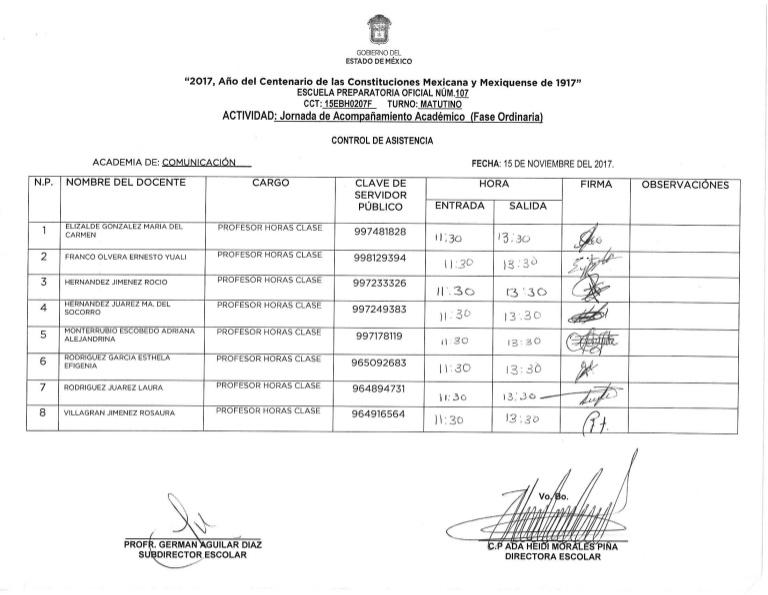 GOBIERNO DEL
ESTADO DE MÉXICO
"2017, Año del Centenario de las Constituciones Mexicana y Mexiquense de 1917"
ESCUELA PREPARATORIA OFICIAL NÚM.107
CCT: 15EBH0207F TURNO: MATUTINO
ACTIVIDAD: Jornada de Acompañamiento Académico (Fase Ordinaria)
CONTROL DE ASISTENCIA
ACADEMIA DE: COMUNICACIÓN FECHA: 15 DE NOVIEMBRE DEL 2017.
N.P. NOMBRE DEL DOCENTE CARGO CLAVE DE SERVIDOR PÚBLICO HORA FIRMA OBSERVACIÓNES
ENTRADA SALIDA
1 ELIZALDE GONZALEZ MARIA DEL CARMEN PROFESOR HORAS CLASE 997481828 11:30 13:30
2 FRANCO OLVERA ERNESTO YUALI PROFESOR HORAS CLASE 998129394 11:30 13:30
3 HERNANDEZ JIMENEZ ROCIO PROFESOR HORAS CLASE 997233326 11:30 13:30
4 HERNANDEZ JUAREZ MA. DEL SOCORRO PROFESOR HORAS CLASE 997249383 11:30 13:30
5 MONTERRUBIO ESCOBEDO ADRIANA ALEJANDRINA PROFESOR HORAS CLASE 997178119 11:30 13:30
6 RODRIGUEZ GARCIA ESTHELA EFIGENIA PROFESOR HORAS CLASE 965092683 11:30 13:30
7 RODRIGUEZ JUAREZ LAURA PROFESOR HORAS CLASE 964894731 11:30 13:30
8 VILLAGRAN JIMENEZ ROSAURA PROFESOR HORAS CLASE 964916564 11:30 13:30
Vo. Bo.
PROFR. GERMAN AGUILAR DIAZ C.P ADA HEIDI MORALES PIÑA
SUBDIRECTOR ESCOLAR DIRECTORA ESCOLAR